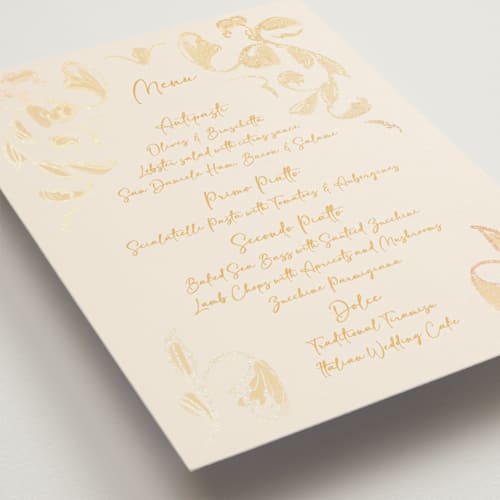 Menu
Antipasti
Olives & Bruschetta
Lobster salad with citrus sauce
San Daniele Ham, Bacon & Salame
Primo Piatto
Scialatielle Pasta with Tomatoes & Aubergines
Secondo Piatto
Baked Sea Bass with Sautéed Zucchine
Lamb Chops with Apricots and Mushrooms
Zucchine Parmigiana
Dolce
Traditional Tiramisu
Italian Wedding Cake